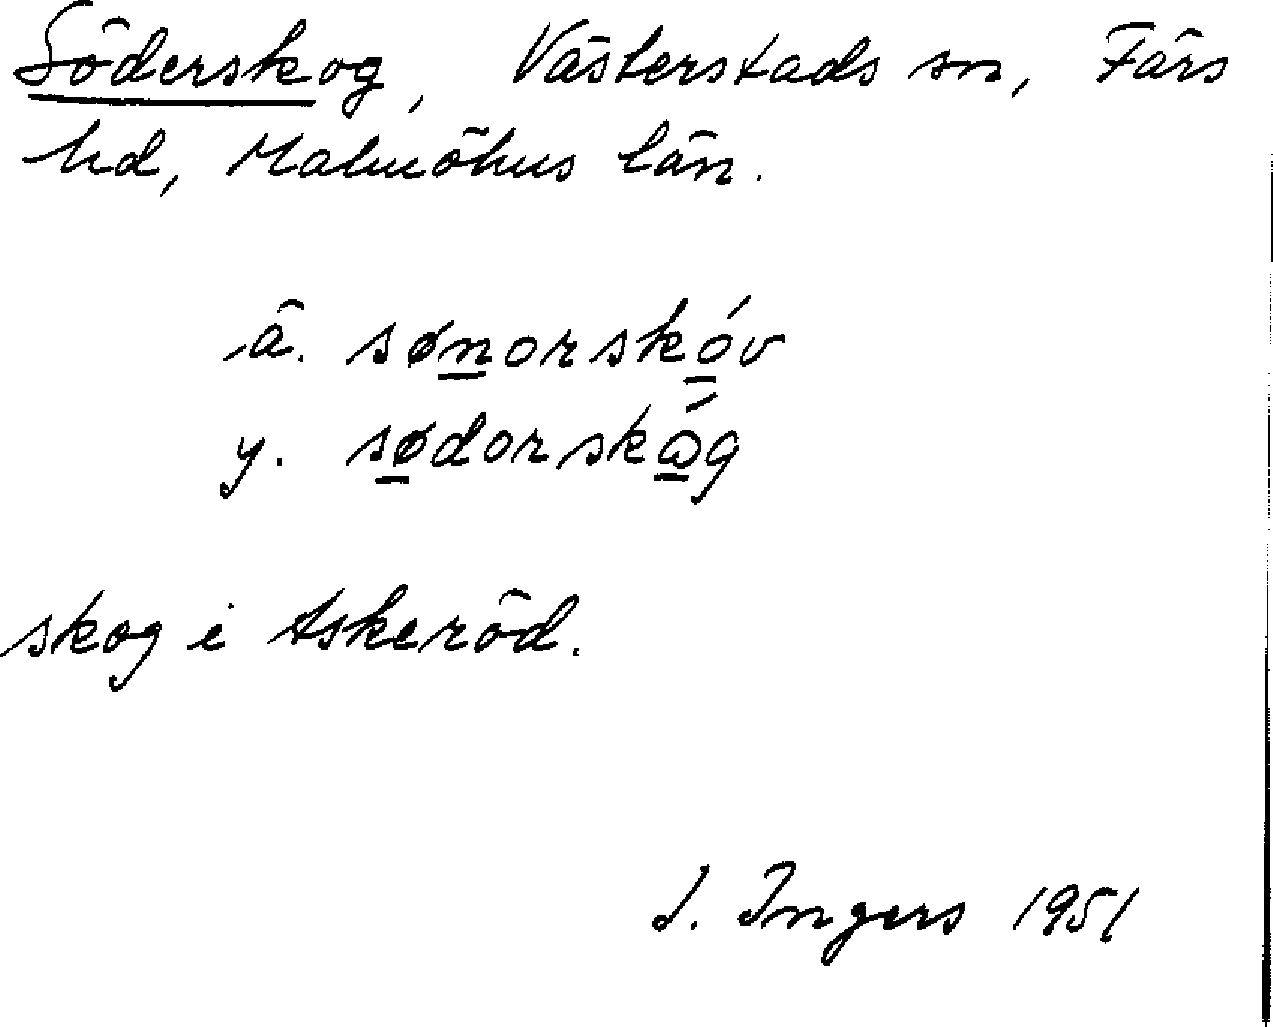 Söderskog, Västerstads sn, Färs
hd, Malmöhus län.
ä. sønorskóv
y. sødorskóg
skog i Askeröd.
I. Ingers 1951